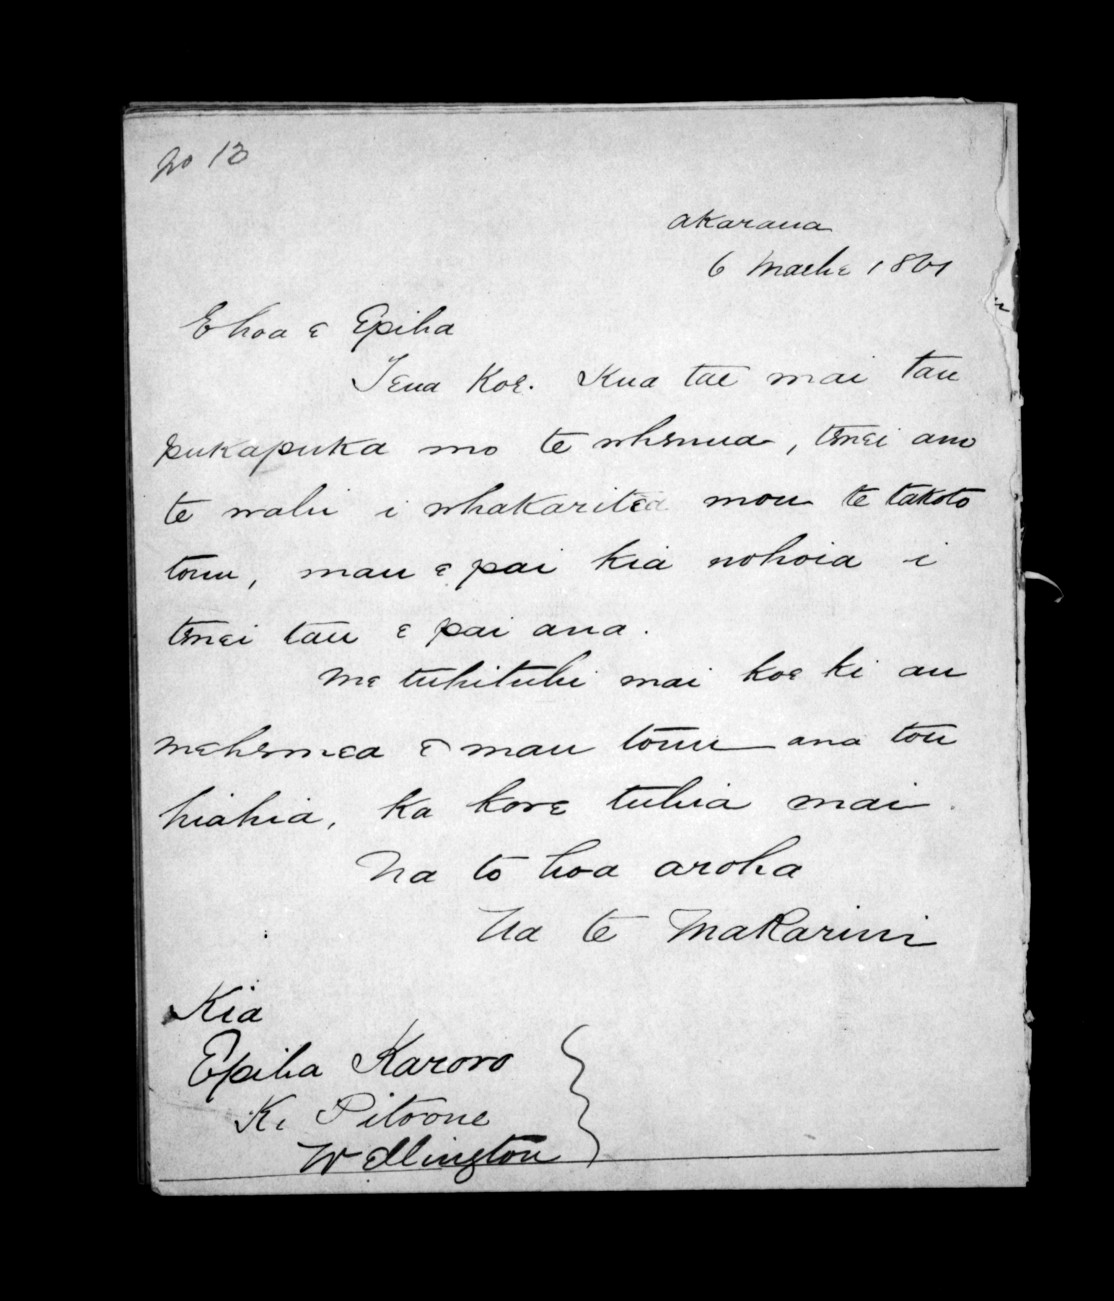 No 12
Akarana
6 Maehe 1861
E hoa e Epiha
Tena koe. Kua tae mai tau
pukapuka mo te whenua, tenei ano
te wahi i whakaritea mou te takoto
tonu, mau e pai kia nohoia i
tenei tau e pai ana.
Me tuhituhi mai koe ki au
mehemea e mau tonu ana tou
hiahia, ka kore tuhia mai
Na to hoa aroha
Na te Makarini
Kia
Epiha Karoro
Ki Pitoone
Wellington